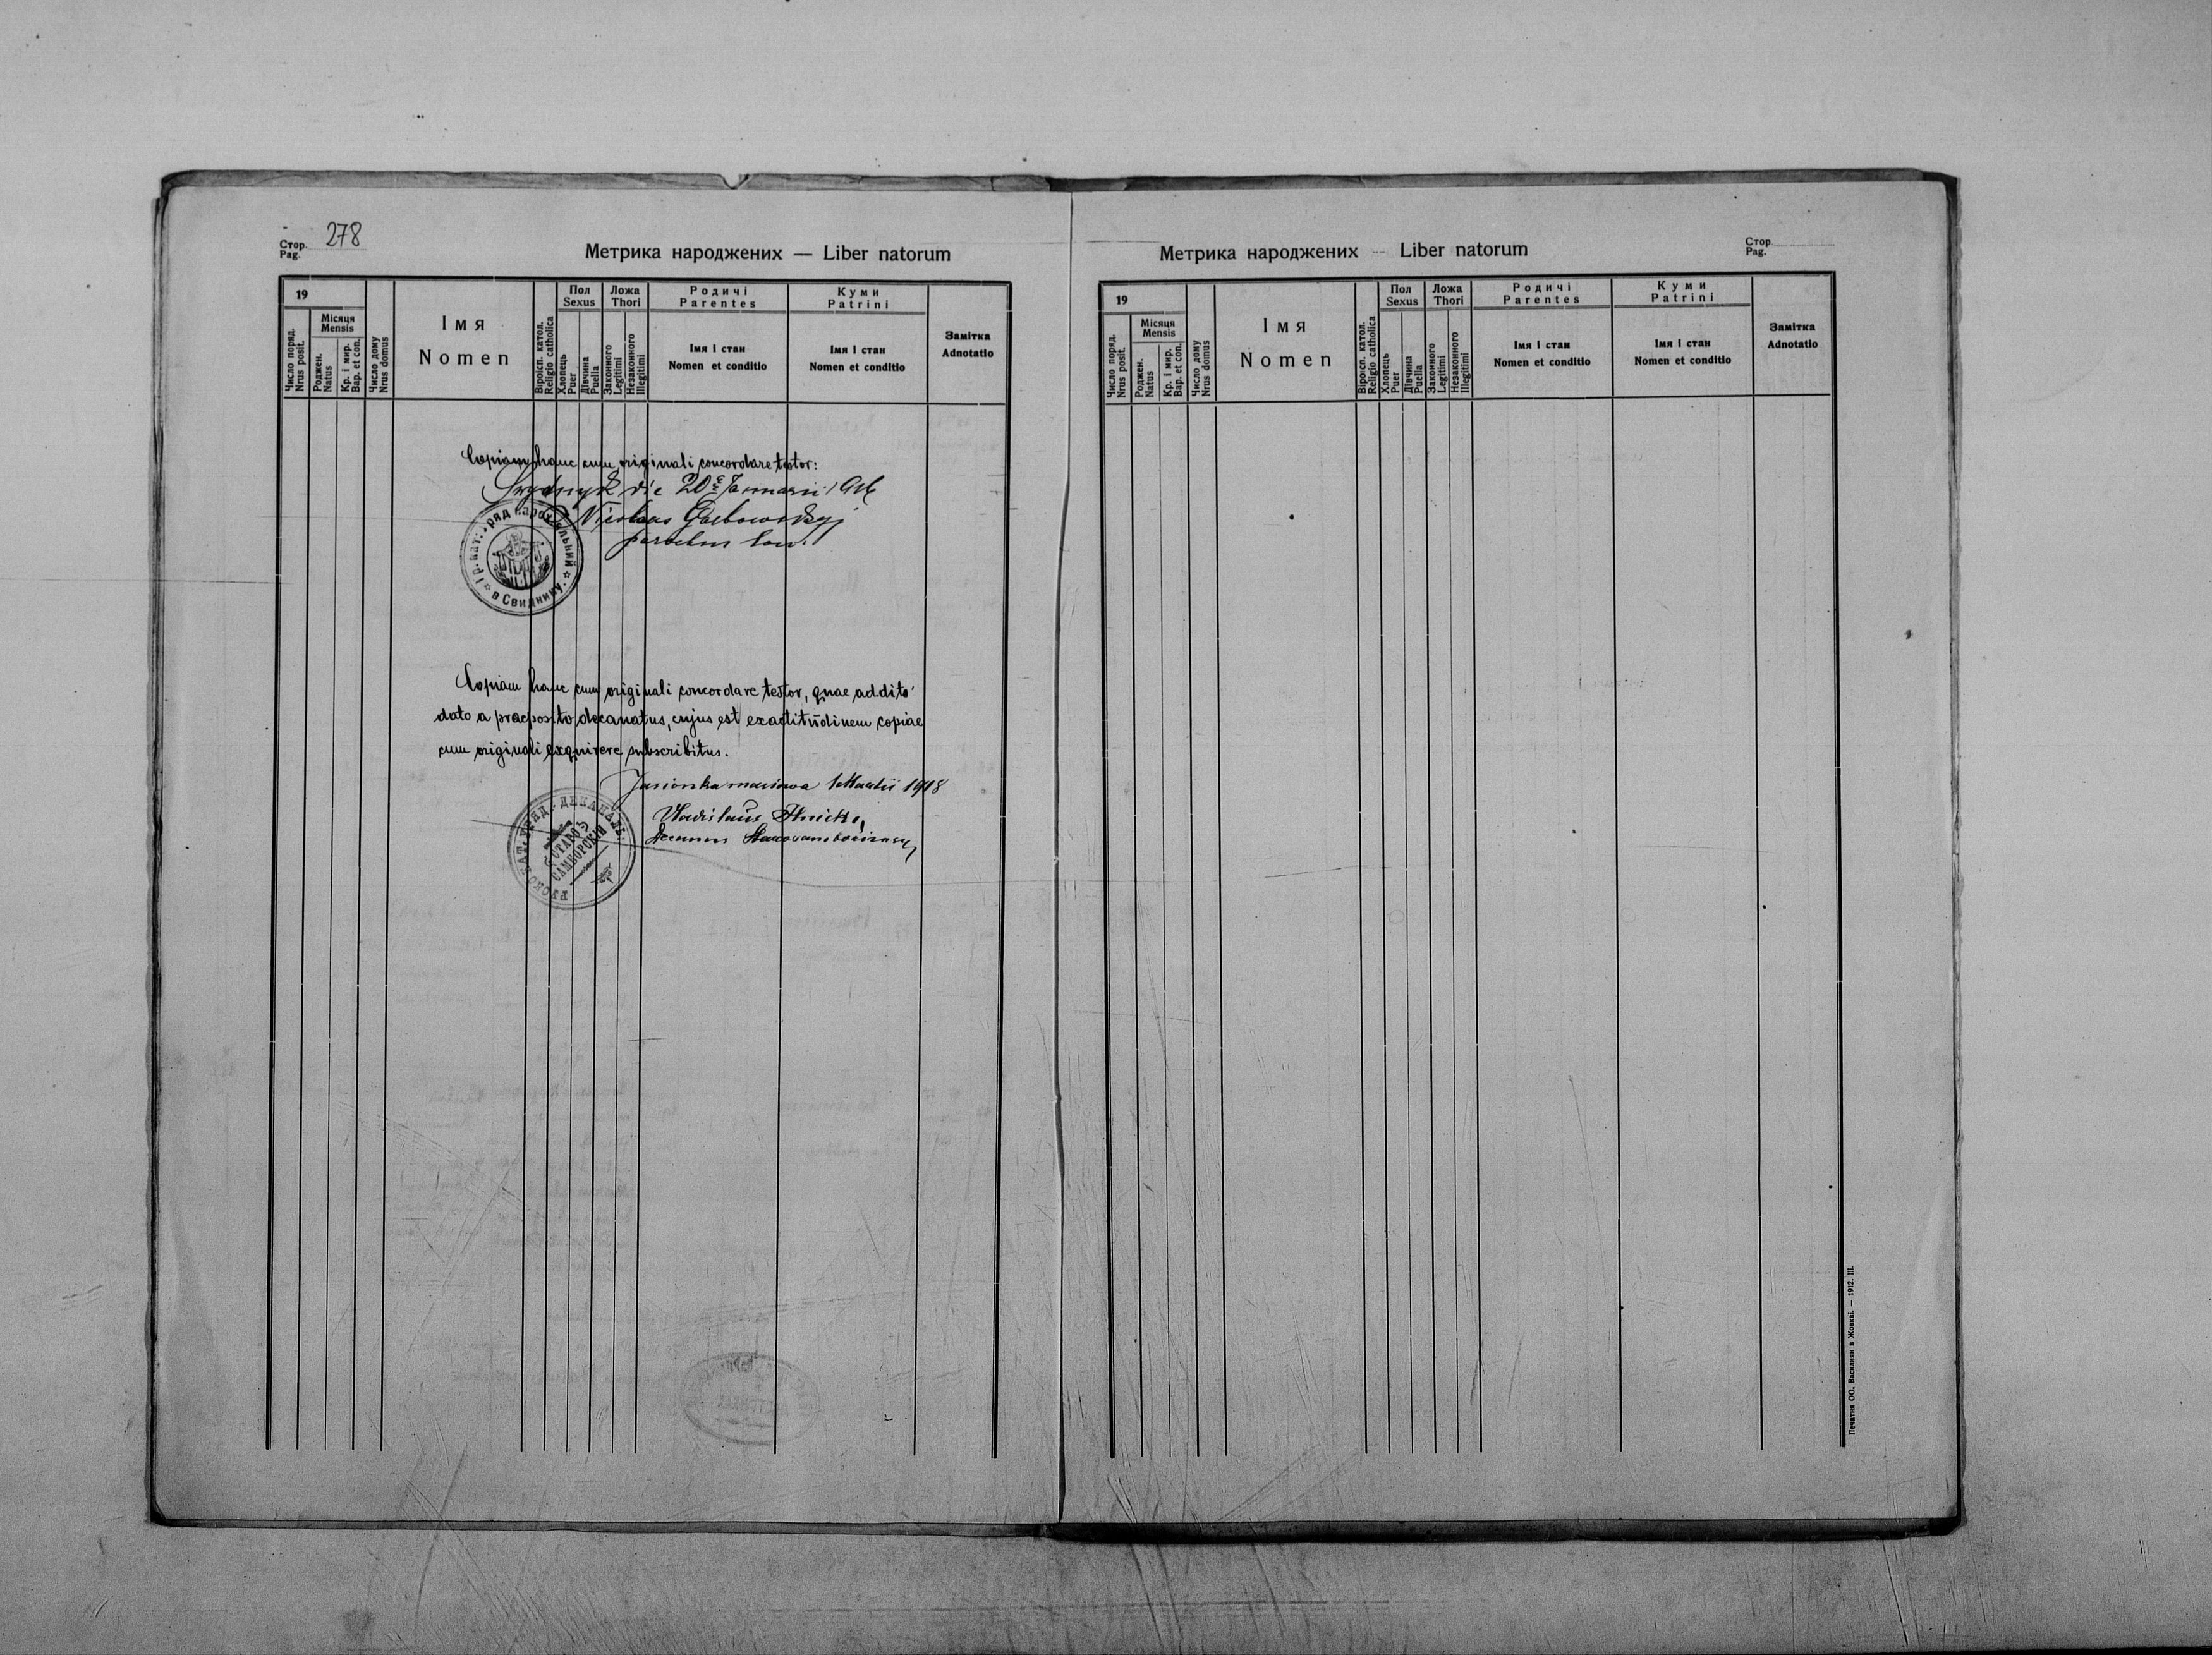 Стор. 278
Pag.
Метрика народжених — Liber natorum
19
Число поряд.
Nrus posit.
Місяця
Mensis
Роджен.
Natus
Кр. і мир.
Bap. et con.
Число дому
Nrus domus
Імя
Nomen
Віроісп. катол.
Religio catholica
Пол
Sexus
Хлопець
Puer
Дівчина
Puella
Ложа
Thori
Законного
Legitimi
Незаконного
Illegitimi
Родичі
Parentes
Імя і стан
Nomen et conditio
Куми
Patrini
Імя і стан
Nomen et conditio
Замітка
Adnotatio
Copiam hanc cum originali concordare testor:
die 20 Januarii
Nicolaus
parochus
в Свиднику.
Copiam hanc cum originali concordare testor, quae addito
dato a praeposito decanatus, cujus est exactitudinem copiae
cum originali exquirere subscribitus.
Jasionka masiowa 1 Martii 1918
Decanus
СТАРО
САМБОРСКІЙ
Метрика народжених — Liber natorum
Стор.
Pag.
19
Число поряд.
Nrus posit.
Місяця
Mensis
Роджен.
Natus
Кр. і мир.
Bap. et con.
Число дому
Nrus domus
Імя
Nomen
Віроісп. катол.
Religio catholica
Пол
Sexus
Хлопець
Puer
Дівчина
Puella
Ложа
Thori
Законного
Legitimi
Незаконного
Illegitimi
Родичі
Parentes
Імя і стан
Nomen et conditio
Куми
Patrini
Імя і стан
Nomen et conditio
Замітка
Adnotatio
Печатня ОО. Василиян в Жовкві. — 1912. III.